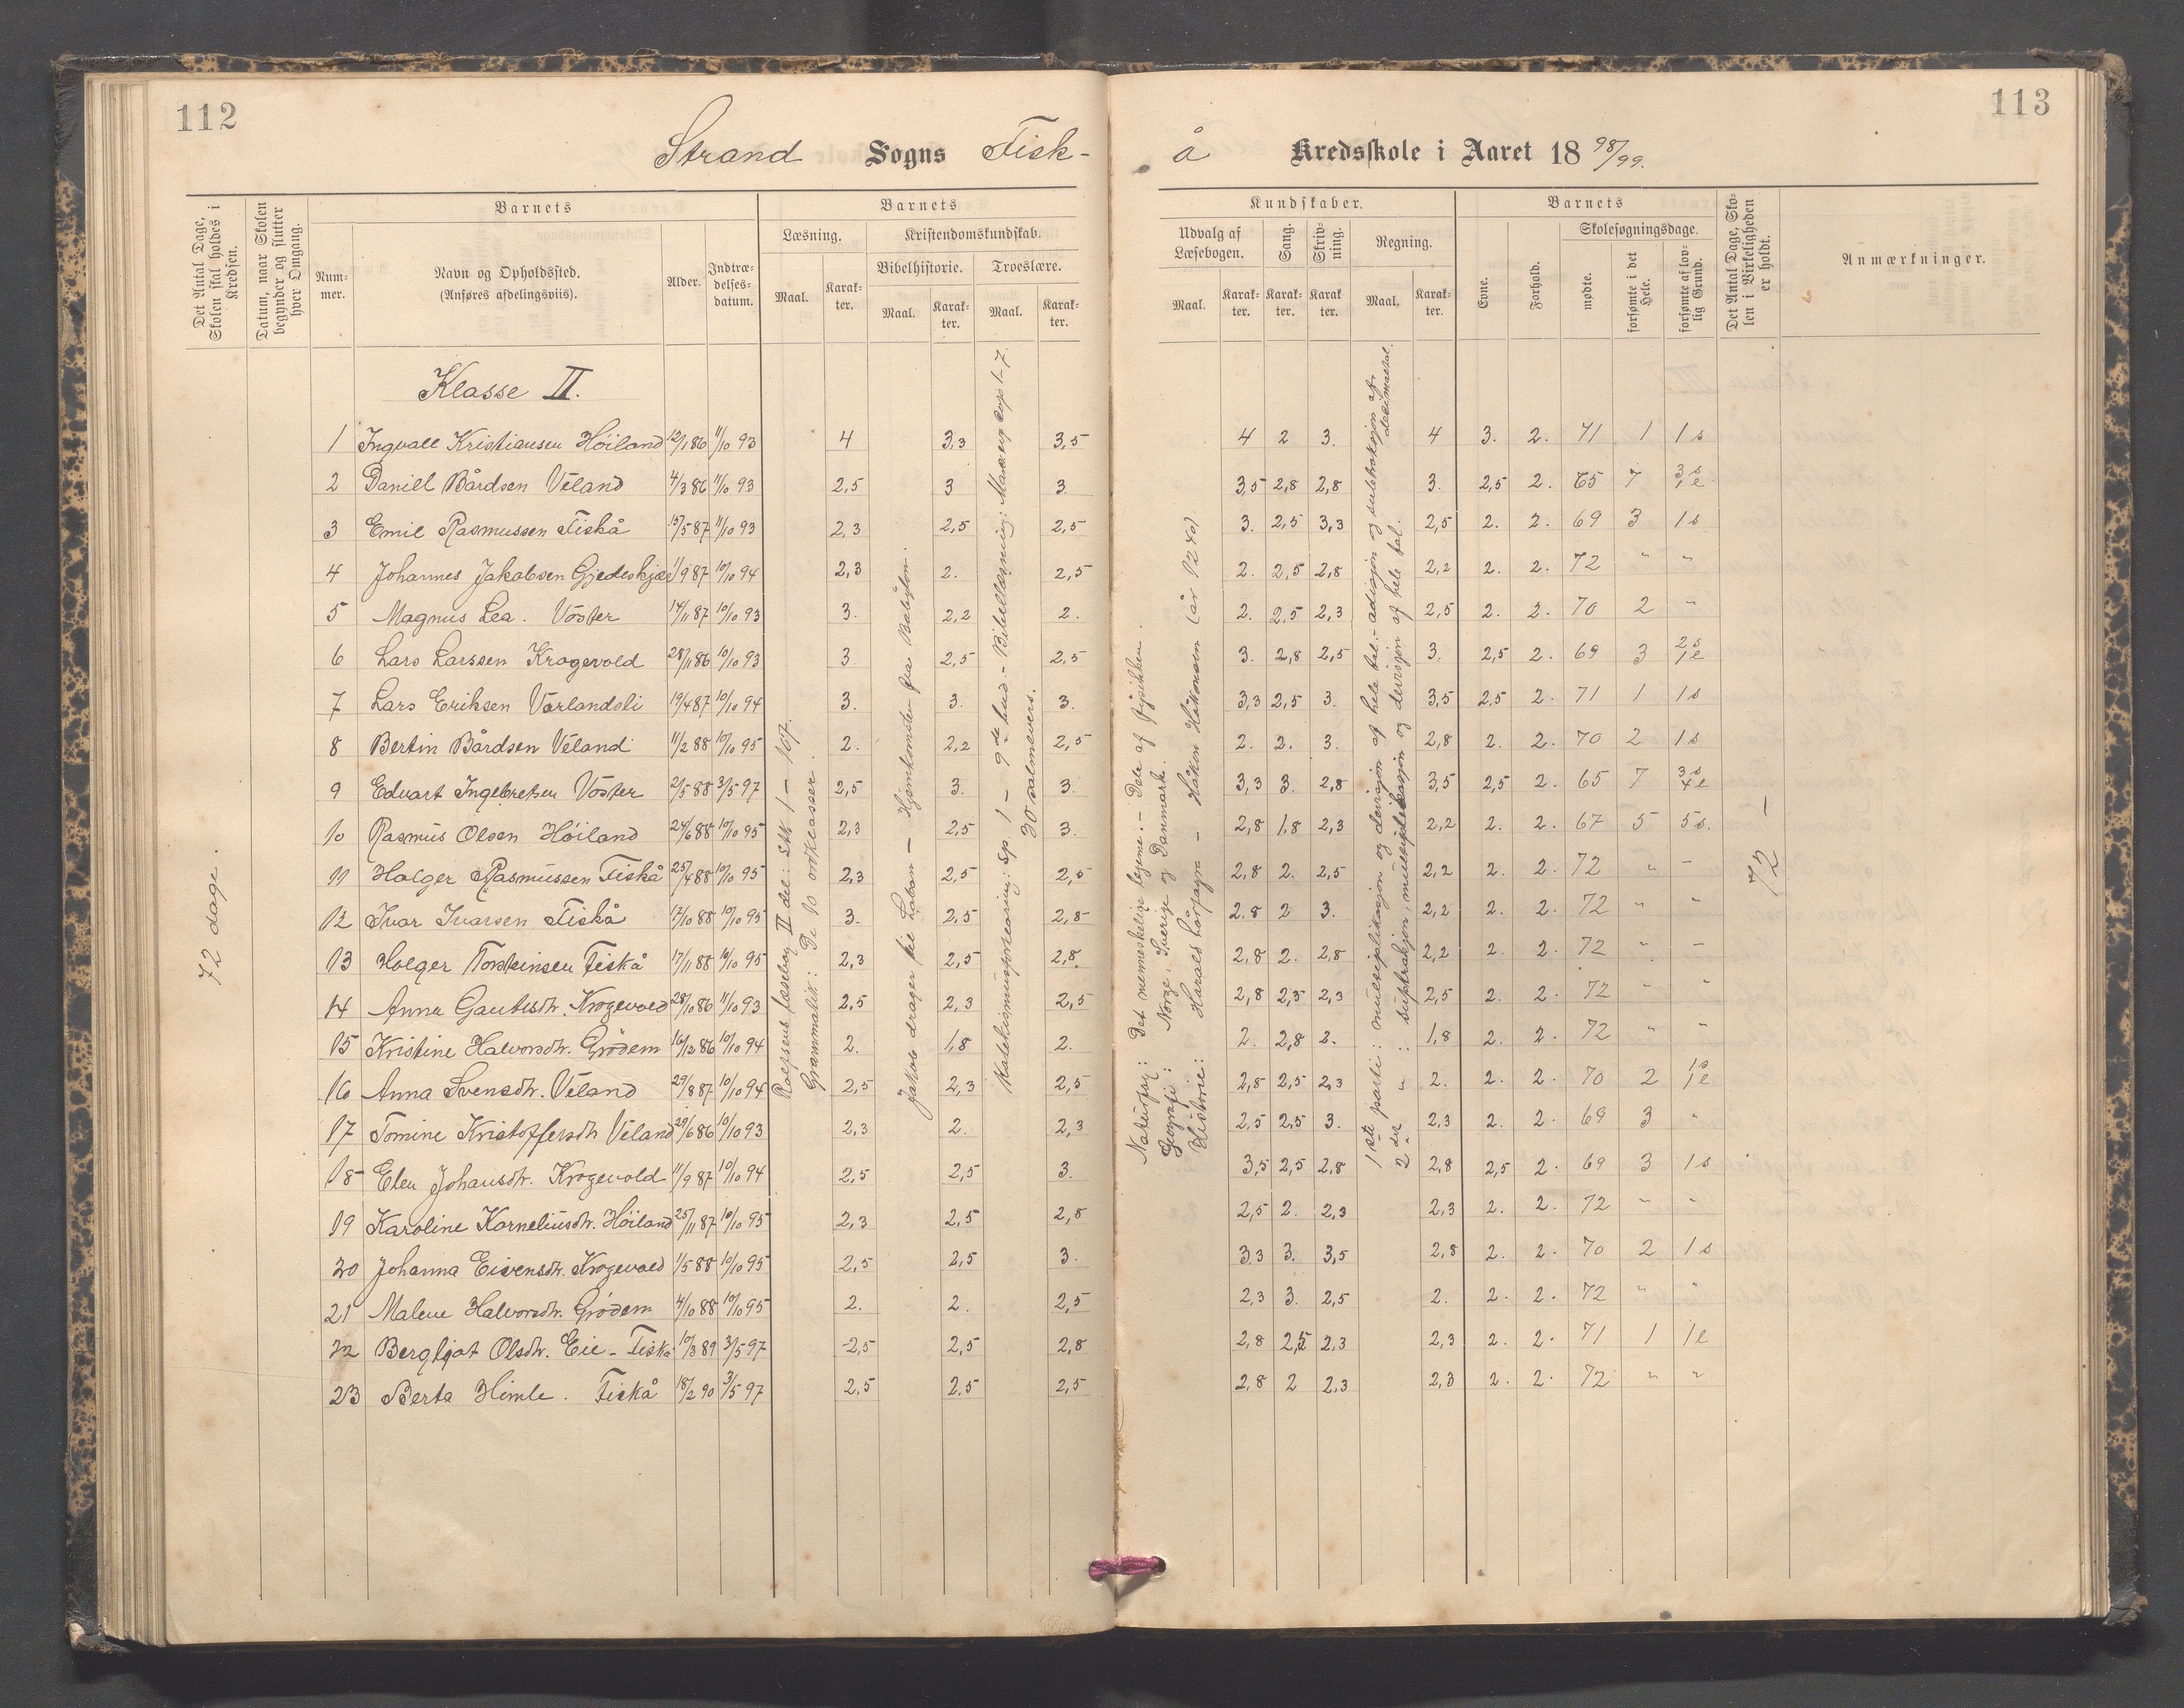 112
113
Strand Sogns Fisk-
å Kredsskole i Aaret 18 98/99.
Det Antal Dage, Skolen skal holdes i Kredsen.
Datum, naar Skolen begynder og slutter hver Omgang.
Barnets
Nummer.
Navn og Opholdssted.
(Anføres afdelingsviis).
Alder.
Indtrædelsesdatum.
Barnets
Læsning.
Maal.
Karakter.
Kristendomskundskab.
Bibelhistorie.
Maal.
Karakter.
Troeslære.
Maal.
Karakter.
Kundskaber.
Udvalg af Læsebogen.
Maal.
Karakter.
Sang.
Karakter.
Skrivning.
Karakter.
Regning.
Maal.
Karakter.
Barnets
Evne.
Forhold.
Skolesøgningsdage.
mødte.
forsømte i det Hele.
forsømte af lovlig Grund.
Det Antal Dage, Skolen i Virkeligheden er holdt.
Anmærkninger.
Klasse II.
1 Ingvall Kristiansen Höiland 12/1 86 11/10 93 4 3,3 3,5 4 2 3. 4 3. 2. 71 1 1 s
2 Daniel Bårdsen Veland 4/3 86 11/10 93 2,5 3 3. 3,5 2,8 2,8 3. 2,5 2. 65 7 3 s 1 l
3 Emil Rasmussen Fiskå 15/5 87 11/10 93 2,3 2,5 2,5 3. 2,5 3,3 2,5 2. 2. 69 3 1 s
4 Johannes Jakobsen Gjedeskjær 1/9 87 10/10 94 2,3 2. 2,5 2. 2,5 2,8 2,2 2. 2. 72 " "
5 Magnus Lea. Voster 14/11 87 10/10 93 3. 2,2 2. 2. 2,5 2,3 2,5 2. 2. 70 2 "
6 Lars Larssen Krogevold 28/11 86 10/10 93 3. 2,5 2,5 3. 2,8 2,5 3. 2,5 2. 69 3 2 s 1 l
7 Lars Eriksen Varlandsli 19/4 87 10/10 94 3. 3. 3. 3,3 2,5 3. 3,5 2,5 2. 71 1 1 s
8 Bertin Bårdsen Veland 11/2 88 10/10 95 2. 2,2 2,5 2. 2. 3. 2,8 2. 2. 70 2 1 s
9 Edvart Ingebretsen Voster 2/5 88 3/5 97 2,5 3. 3. 3,3 3. 2,8 3,5 2,5 2. 65 7 3 s 4 l
10 Rasmus Olsen Höiland 24/6 88 10/10 95 2,3 2,5 3. 2,8 1,8 2,3 2,2 2. 2. 67 5 5 s.
11 Holger Rasmussen Fiskå 25/4 88 10/10 95 2,3 2,5 2,5 2,8 2. 2,5 2,2 2. 2. 72 " "
12 Ivar Ivarsen Fiskå 17/10 88 10/10 95 3. 2,5 2,8 2.8 2 3. 2,2 2. 2. 72 " "
13 Holger Torsteinsen Fiskå 17/11 88 10/10 95 2,3 2,5 2,8. 2,8 2. 2,8 2,2 2. 2. 72 " "
14 Anna Gautesdtr. Krogevold 28/10 86 11/10 93 2,5 2,3 2,5 2,8 2,5 2,3 2,5 2. 2. 72 " "
15 Kristine Halvorsdtr. Grödem 16/12 86 10/10 94 2. 1,8 2. 2. 2,8 2. 1,8 2. 2. 72 " "
16 Anna Svensdtr. Veland 29/8 87 10/10 94 2,5 2,3 2,5 2,8 2,5 2,3 2. 2. 2. 70 2 1 s 1 l
17 Tomine Kristoffersdtr Veland 29/6 86 10/10 93 2,3 2. 2,3 2,5 2,5 3. 2,3 2. 2. 69 3 "
18 Elen Johansdtr. Krogevold 11/9 87 10/10 94 2,5 2,5 3. 3,5 2,5 2,8 2,8 2,5 2. 69 3 1 s
19 Karoline Korneliusdtr. Höiland 25/11 87 10/10 95 2,3 2,5 2,8 2,5 2. 2,3 2,3 2. 2. 72 " "
20 Johanna Eivensdtr. Krogevold 1/5 88 10/10 95 2,5 2,5 3. 3,3 3. 3,5 2,8 2. 2. 70 2 1 s
21 Malene Halvorsdtr. Grödem 4/10 88 10/10 95 2. 2. 2,5 2,3 3. 2,5 2. 2. 2. 72 " "
22 Bergljot Olsdtr. Eie - Fiskå 10/3 89 3/5 97 2,5 2,5 2,8 2,8 2,5 2,3 2,3 2. 2. 71 1 1 l
23 Berta Himle. Fiskå 18/2 90 3/5 97 2,5 2.5 2,5 2,8 2 2,3 2,3 2. 2. 72 " "
72 dage.
Rolfsens læsebog II del: Stk 1 - 167.
Grammatik: De 10 ordklasser.
Jakob drager til Laban - Hjemkomsten fra Babylon.
Katekismusforklaring: sp 1 - 9de bud. - Bibellæsning: Mark evg kap 1-7.
30 salmevers.
Naturfag: Det menneskelige legeme. - Dele af fysikken.
Geografi: Norge, Sverige og Danmark.
Historie: Harals hårfagre - Håkon Håkonsen (år 1240).
1ste parti: multiplikasjon og divisjon af hele tal. - adisjon og subtraksjon af decimaltal.
2det " : subtraksjon, multiplikasjon og divisjon af hele tal.
72 -